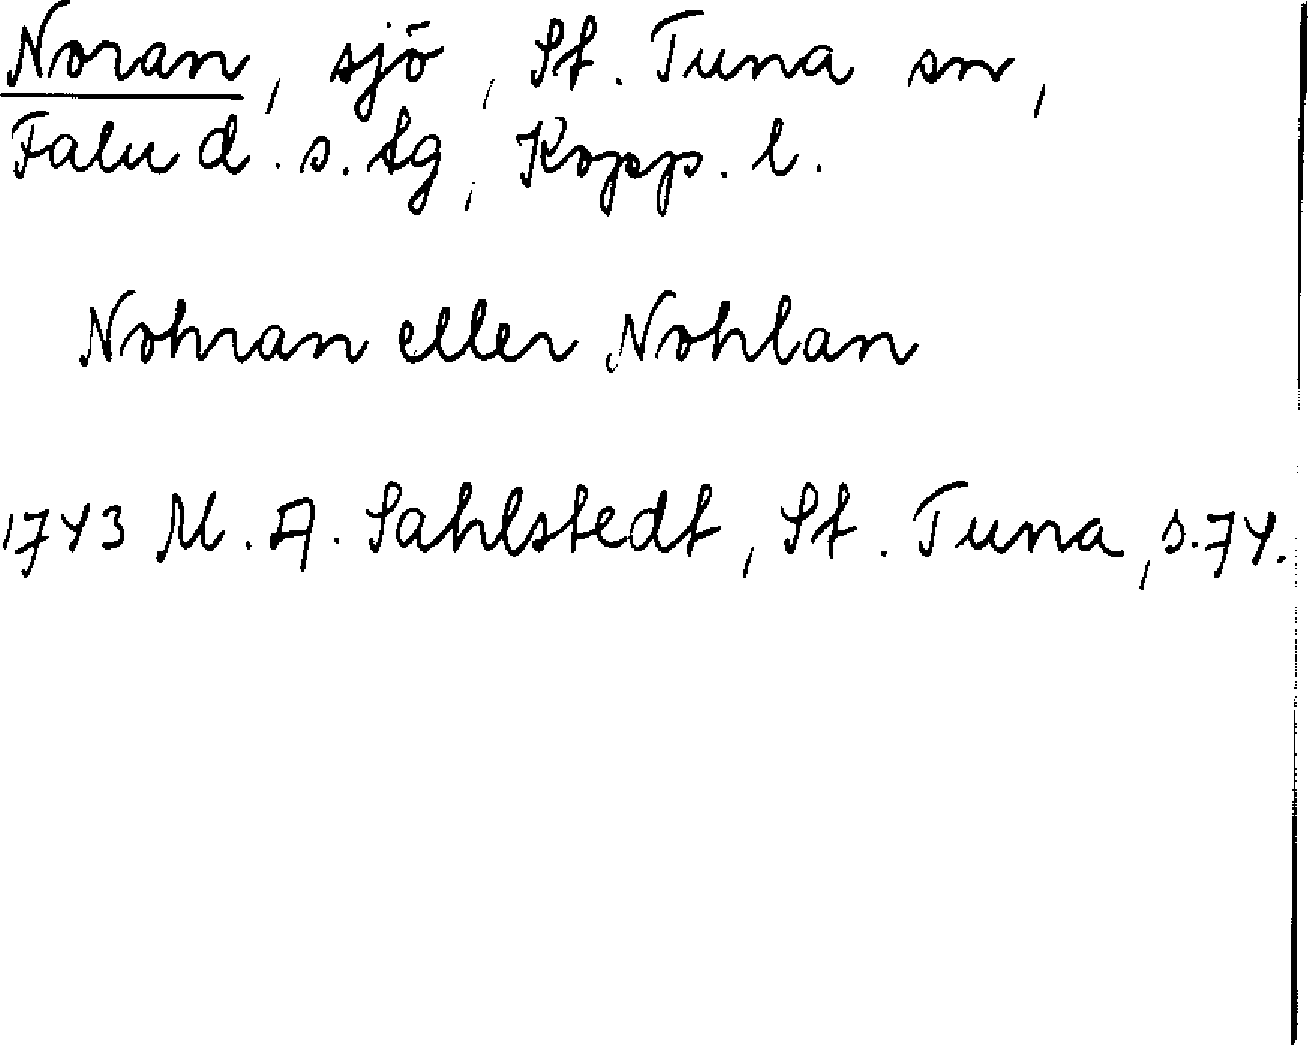 Noran, sjö, St. Tuna sn,
Falu d. s. tg, Kopp. l.
Nohran eller Nohlan
1743 M. A. Sahlstedt, St. Tuna, s. 74.